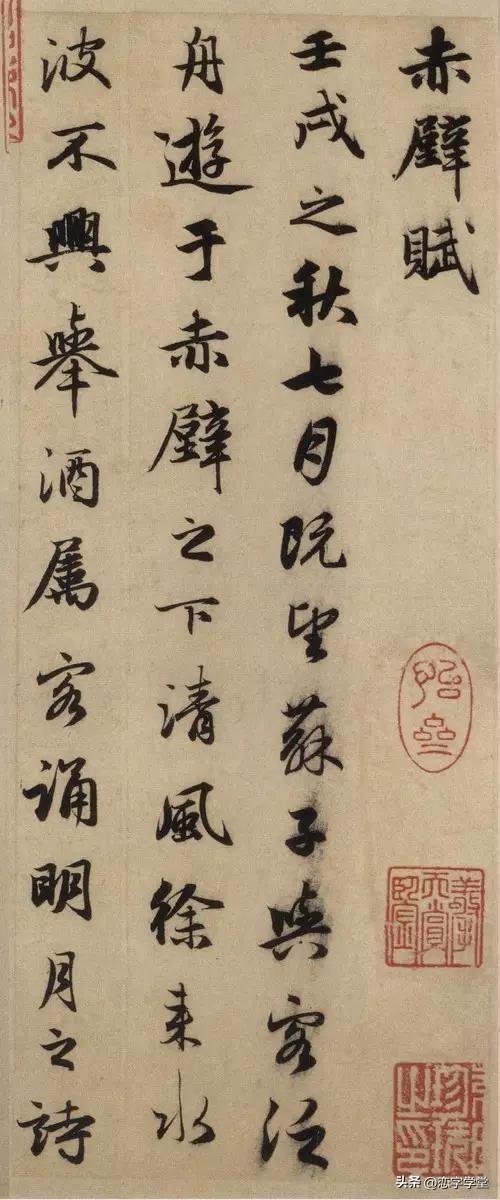 赤壁賦
壬戌之秋七月既望蘇子與客泛
舟遊于赤壁之下清風徐来水
波不興舉酒属客誦明月之詩
头条 @恋字学堂